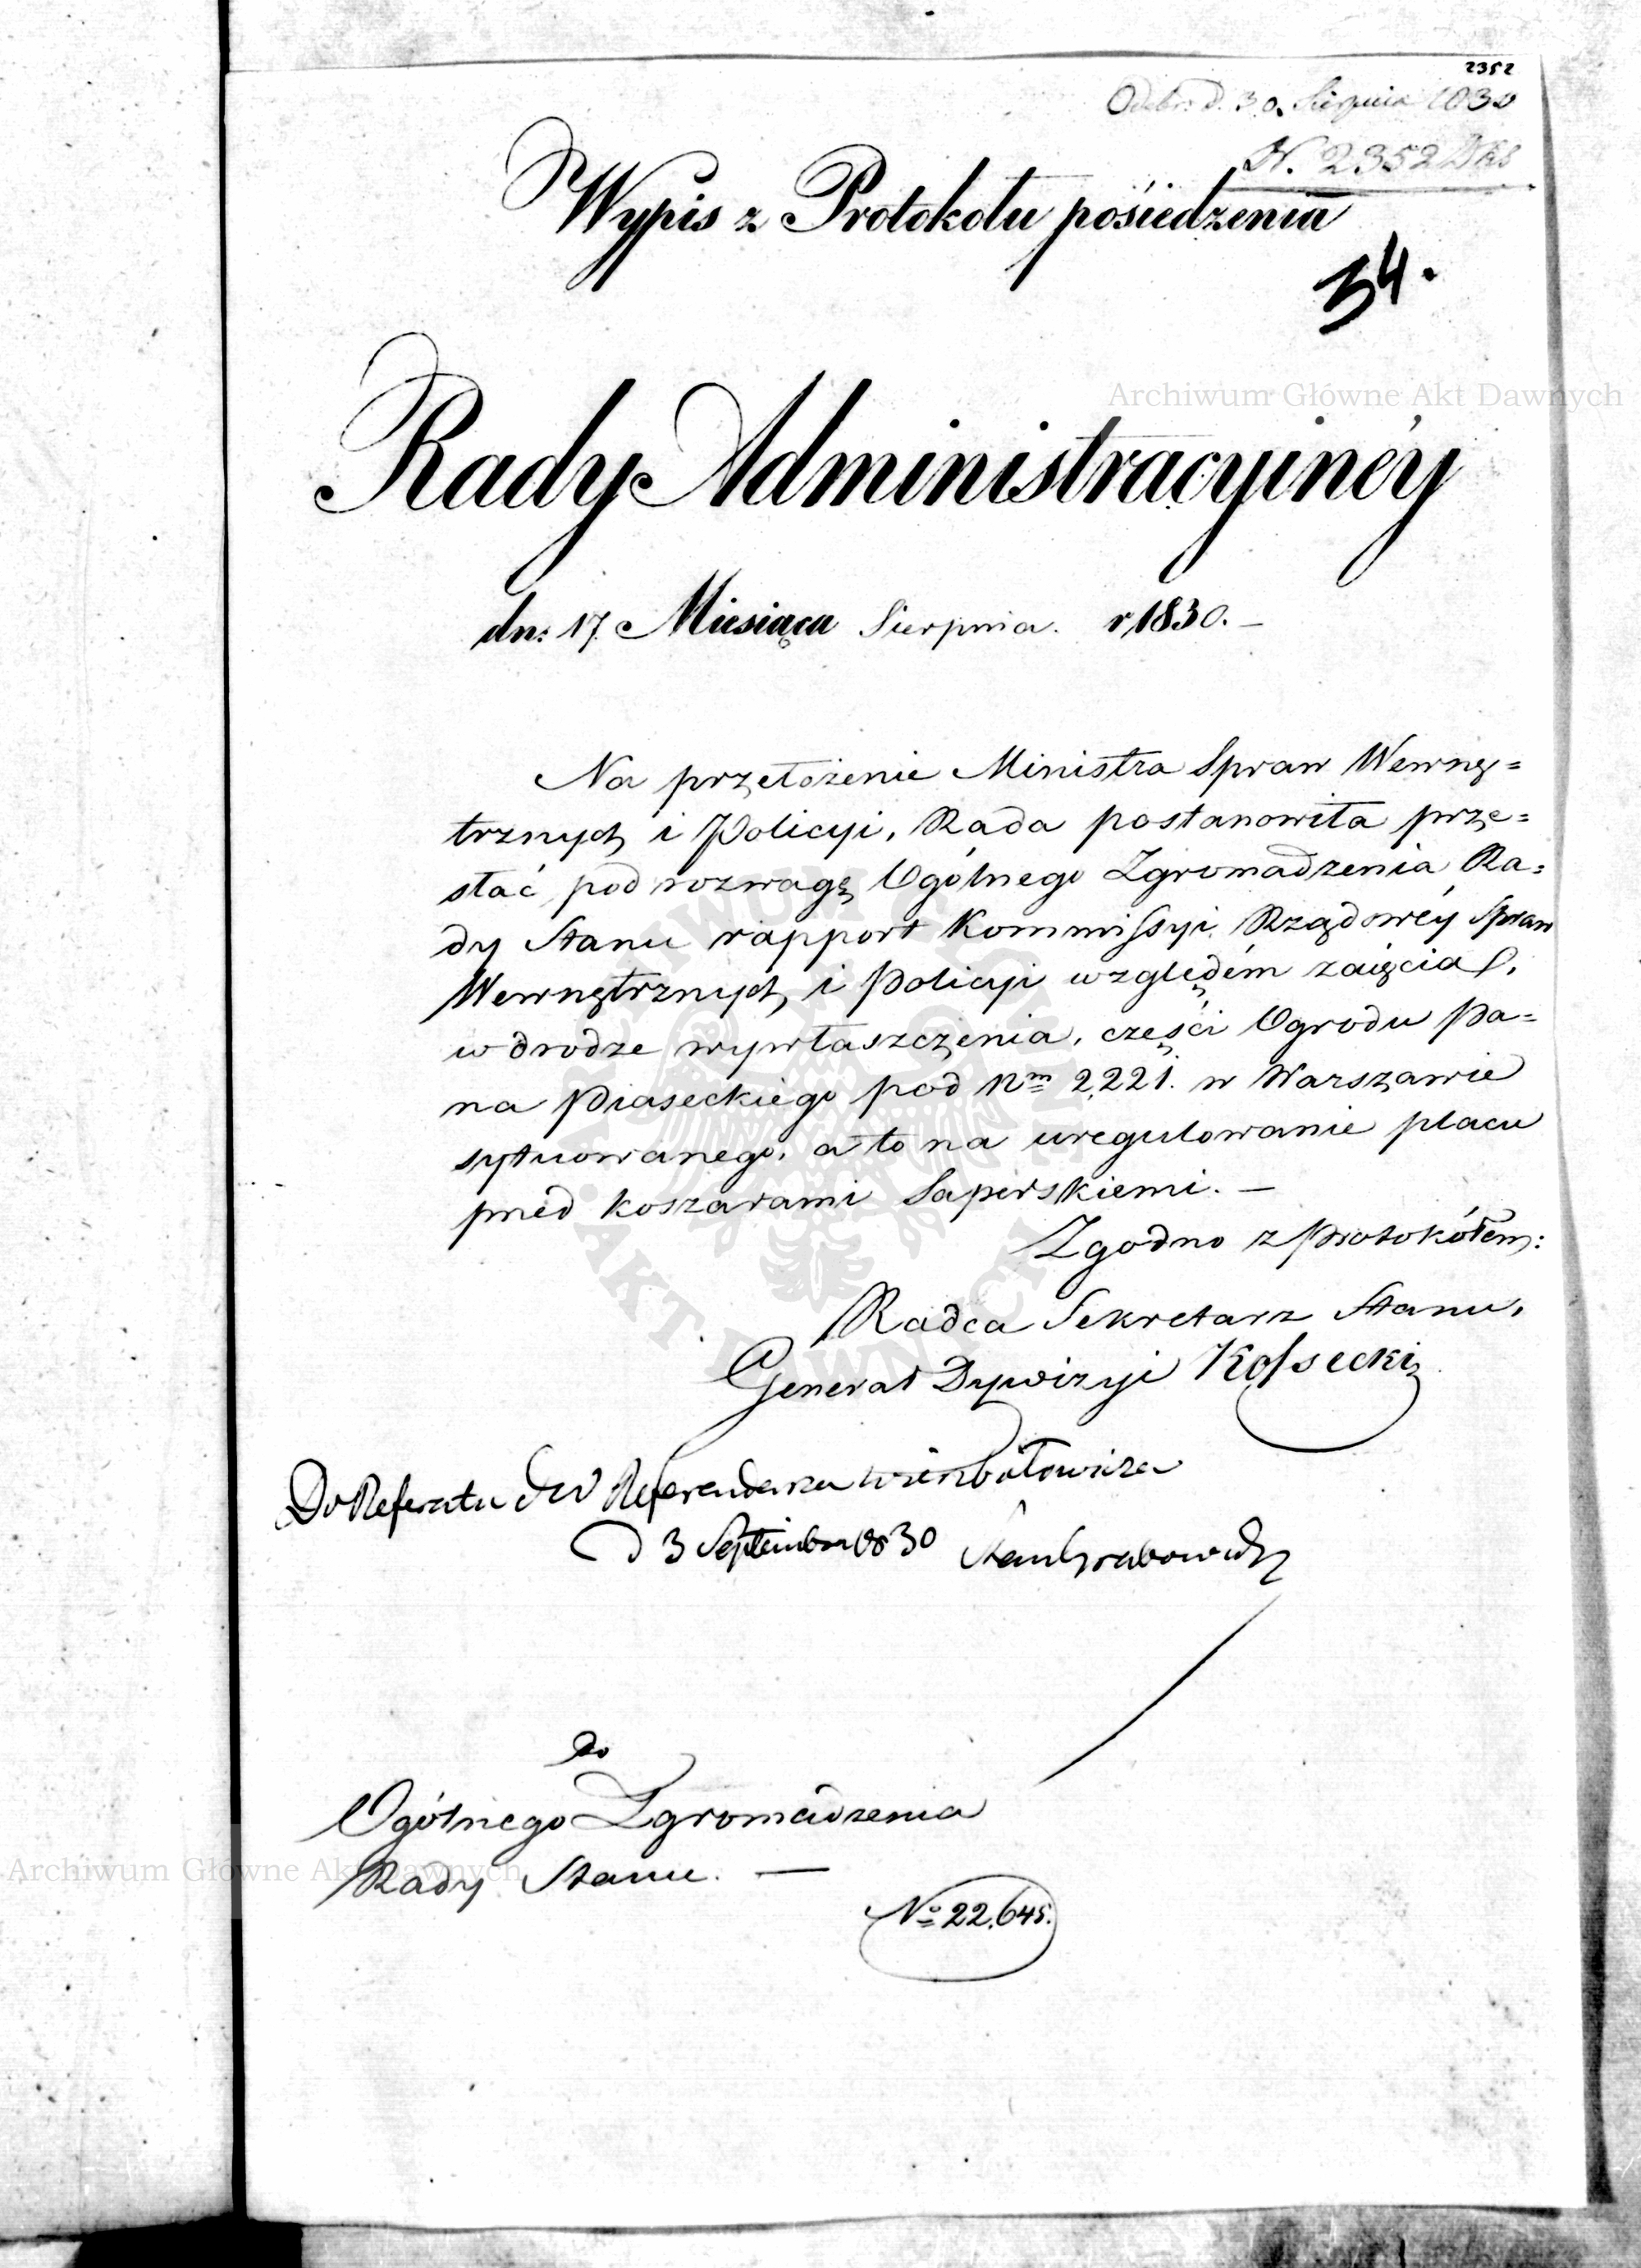 2352
Odebr: d. 30. Sierpnia 1830
N. 2352
Wypis z Protokołu pośiedzenia
34.
Rady Administracyinéy
dn: 17. Miesiąca Sierpnia. r 1830. –
Na przełożenie Ministra Spraw Wewnę=
trznych i Policyi, Rada postanowiła prze=
słać pod rozwagę Ogólnego Zgromadzenia Ra=
dy Stanu rapport Kommissyi Rządowéy Spraw
Wewnętrznych i Policyi względém zaięcia
w drodze wywłaszczenia, części Ogrodu Pa=
na Piaseckiego pod Nm 2,221. w Warszawie
sytuowanego, a to na uregulowanie placu
przed koszarami Saperskiemi. –
Zgodno z Protokółem:
Radca Sekretarz Stanu,
Generał Dywizyi Kossecki
Do Referatu JW Referendarza Wierzbołowicza
D 3 Septembra 1830 Stan Grabowski
Do
Ogólnego Zgromadzenia
Rady Stanu. –
No 22,645.
Archiwum Główne Akt Dawnych
Archiwum Główne Akt Dawnych
ARCHIWUM GŁÓWNE · AKT DAWNYCH ·